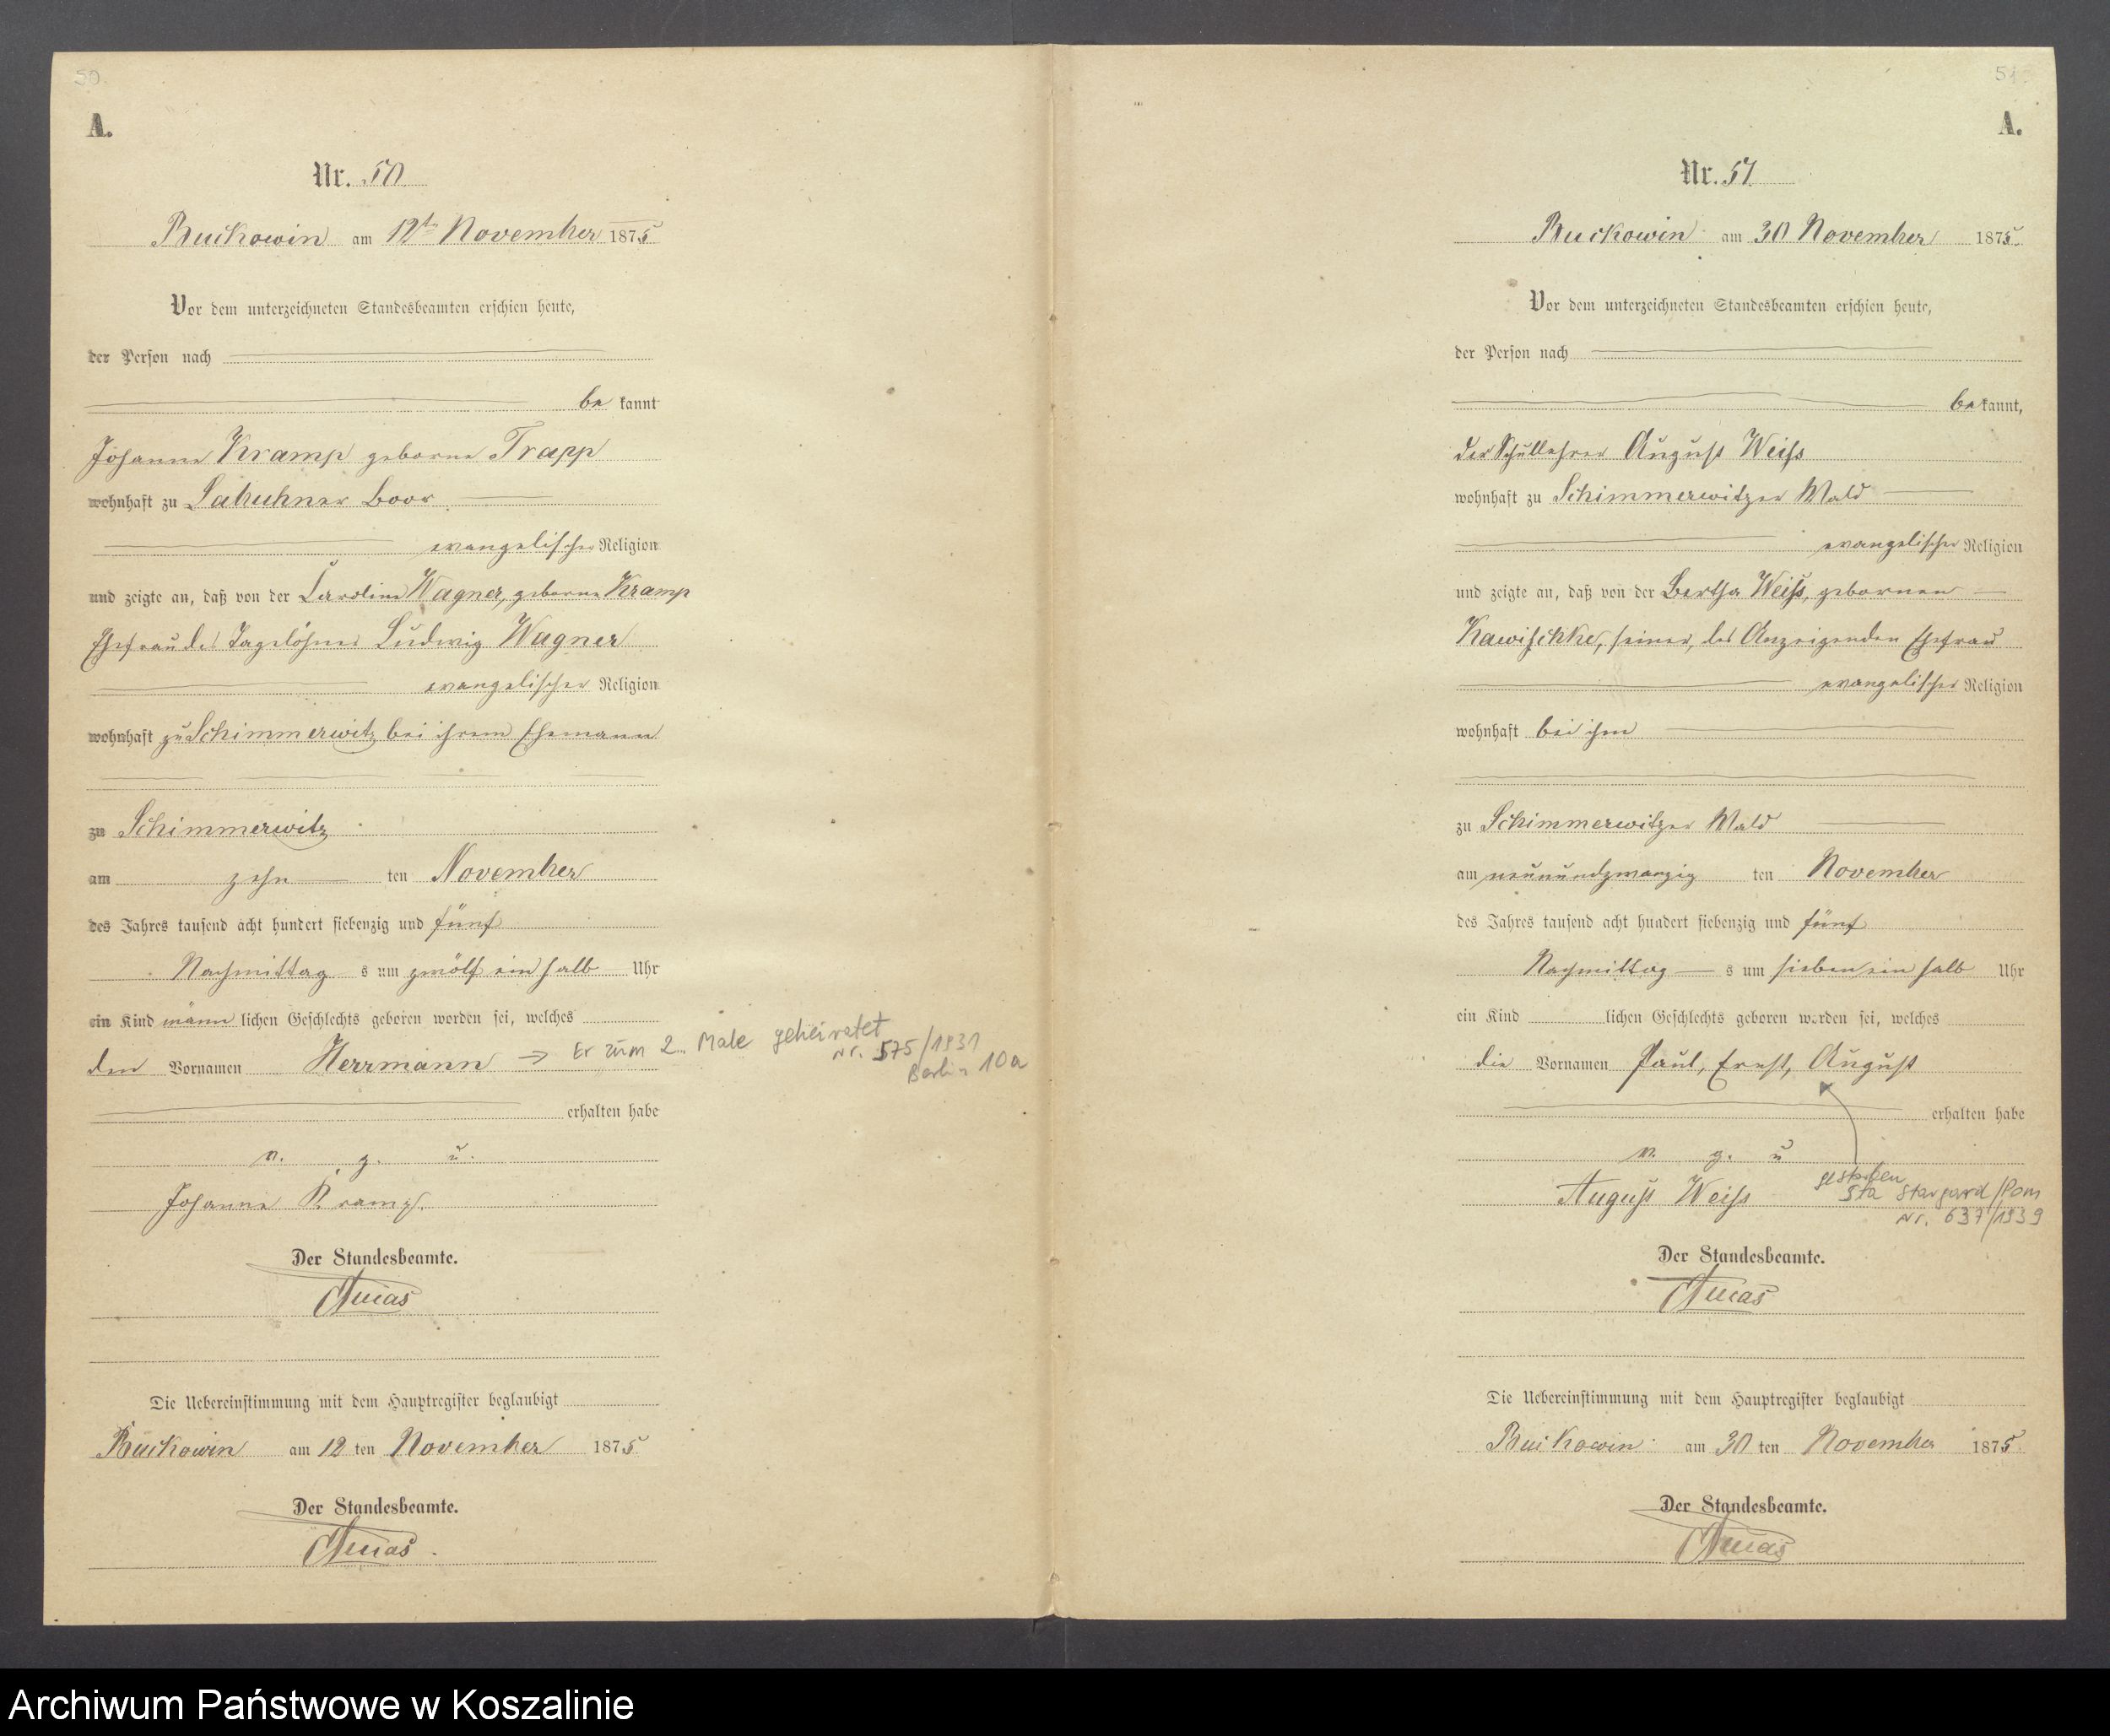 50.
A.
Nr. 50
Buckowin am 12t November 1875
Vor dem unterzeichneten Standesbeamten erschien heute,
der Person nach
be kannt
Johanne Kramp geborne Trapp
wohnhaft zu Labuhner Boor
evangelischer Religion
und zeigte an, daß von der Caroline Wagner, geborne Kramp
Ehefrau des Tagelöhner Ludwig Wagner
evangelischer Religion
wohnhaft zu Schimmerwitz bei ihrem Ehemann
zu Schimmerwitz
am zehn ten November
des Jahres tausend acht hundert siebenzig und fünf
Nachmittag s um zwölf ein halb Uhr
ein Kind männ lichen Geschlechts geboren worden sei, welches
den Vornamen Herrmann → Er zum 2. Male geheiratet
Nr. 575/1931
Berlin 10a
erhalten habe
v. g. u.
Johanne Kramp.
Der Standesbeamte.
Die Uebereinstimmung mit dem Hauptregister beglaubigt
Buckowin am 12 ten November 1875
Der Standesbeamte.
51.
A.
Nr. 51
Buckowin am 30 November 1875.
Vor dem unterzeichneten Standesbeamten erschien heute,
der Person nach
be kannt,
der Schullehrer August Weiss
wohnhaft zu Schimmerwitzer Wald
evangelischer Religion
und zeigte an, daß von der Bertha Weiss, gebornen
Kawischke, seiner, des Anzeigenden Ehefrau
evangelischer Religion
wohnhaft bei ihm
zu Schimmerwitzer Wald
am neunundzwanzig ten November
des Jahres tausend acht hundert siebenzig und fünf
Nachmittag s um sieben ein halb Uhr
ein Kind lichen Geschlechts geboren worden sei, welches
die Vornamen Paul, Ernst, August
erhalten habe
v. g. u
gestorben
August Weiss Sta Stargard/Pom
Nr. 637/1939
Der Standesbeamte.
Die Uebereinstimmung mit dem Hauptregister beglaubigt
Buckowin am 30 ten November 1875
Der Standesbeamte.
Archiwum Państwowe w Koszalinie